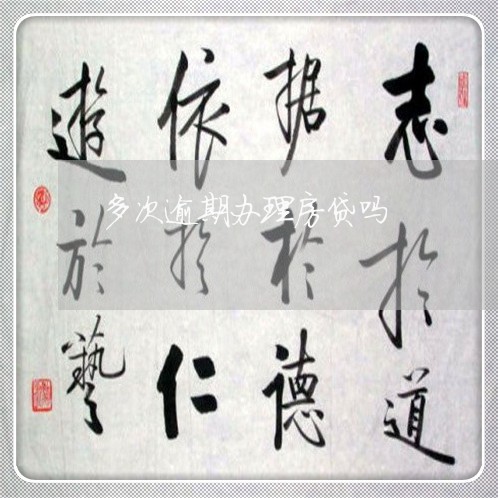 志扵道
据扵德
依扵仁
遊於藝
多次逾期办理房贷吗